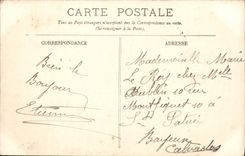 CARTE POSTALE
Tous les Pays étrangers n'acceptent pas la Correspondance au recto.
(Se renseigner à la Poste).
CORRESPONDANCE
ADRESSE
Bien le
Bonjour
Etienne
Mademoiselle Marie
Le Roy chez Melle
10 rue
10 a
St Patrice
Bayeux
Calvados